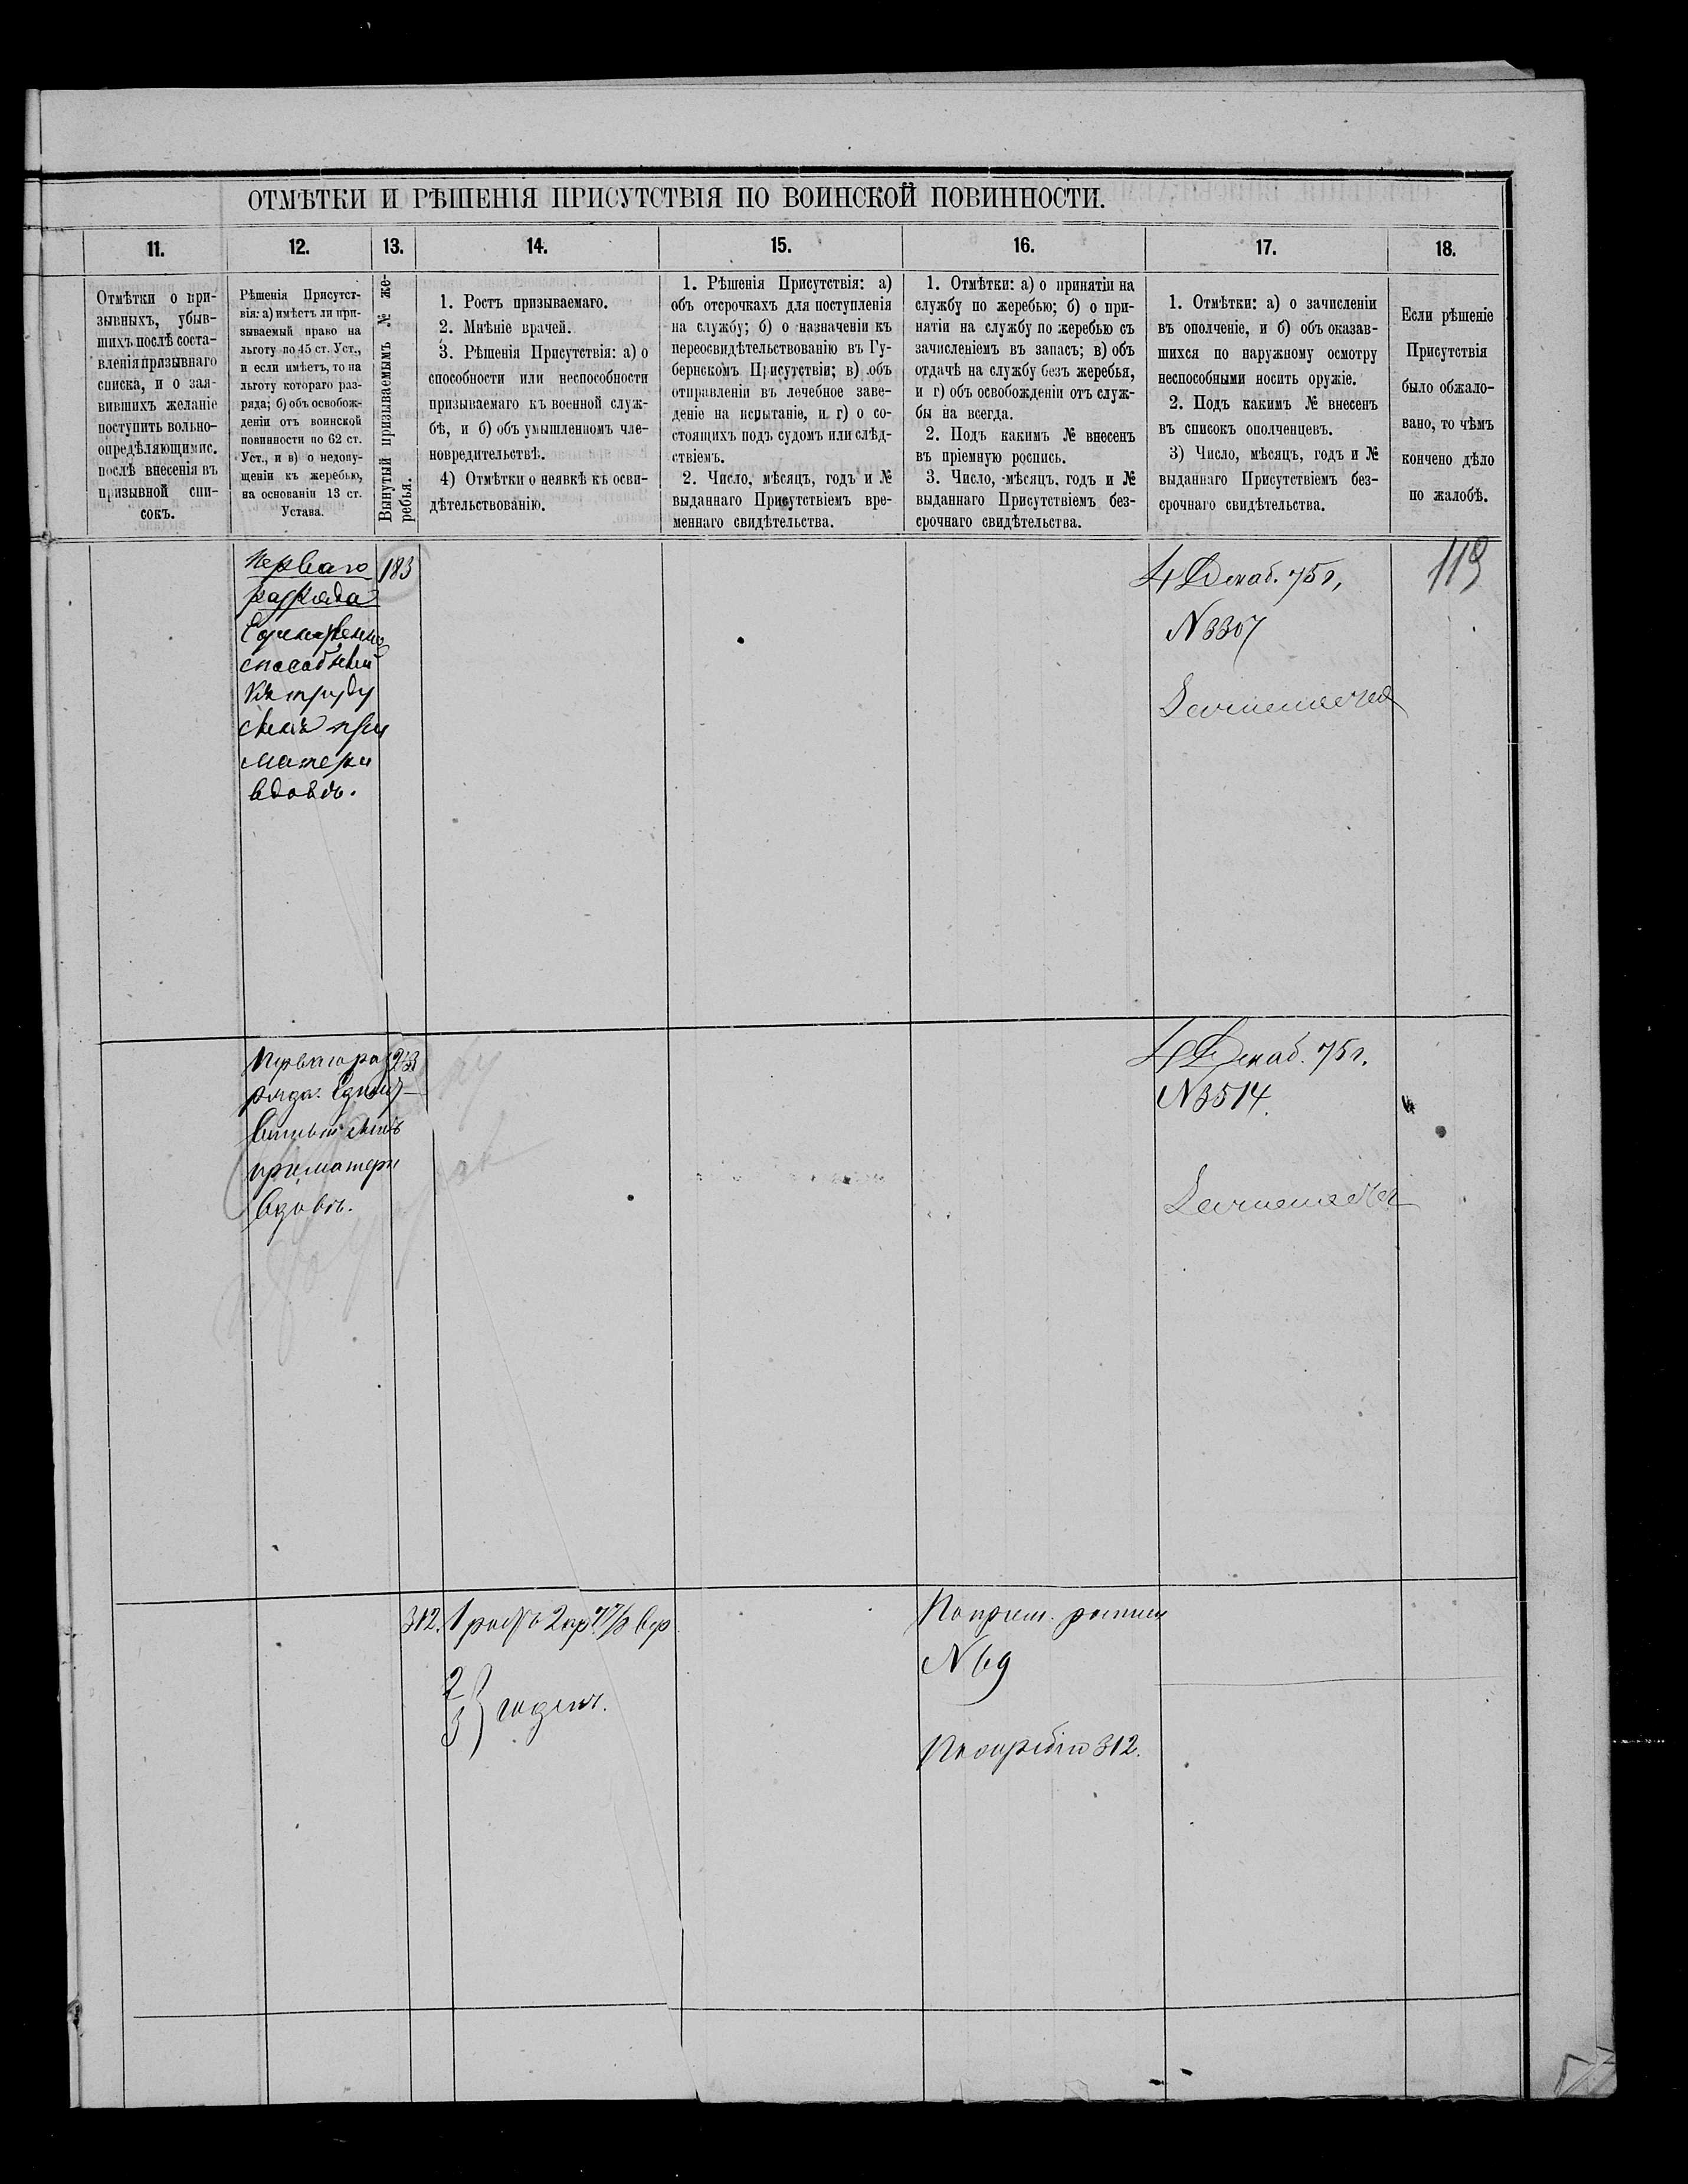 ОТМѢТКИ И РѢШЕНІЯ ПРИСУТСТВІЯ ПО ВОИНСКОЙ ПОВИННОСТИ.
11.
12.
13.
14.
15.
16.
17.
18.
Отмѣтки о при-
зывныхъ, убыв-
шихъ послѣ соста-
вленія призывнаго
списка, и о зая-
вившихъ желаніе
поступить вольно-
опредѣляющимис.
послѣ внесенія въ
призывной спи-
сокъ.
Рѣшенія Присутст-
вія: а) имѣетъ ли при-
зываемый право на
льготу по 45 ст. Уст.,
и если имѣетъ, то на
льготу котораго раз-
ряда; б) объ освобож-
деніи отъ воинской
повинности по 62 ст.
Уст., и в) о недопу-
щеніи къ жеребью,
на основаніи 13 ст.
Устава.
Вынутый призываемымъ № же-
ребья.
1. Ростъ призываемаго.
2. Мнѣніе врачей.
3. Рѣшенія Присутствія: а) о
способности или неспособности
призываемаго къ военной служ-
бѣ, и б) объ умышленномъ чле-
новредительствѣ.
4) Отмѣтки о неявкѣ къ осви-
дѣтельствованію.
1. Рѣшенія Присутствія: а)
объ отсрочкахъ для поступленія
на службу; б) о назначеніи къ
переосвидѣтельствованію въ Гу-
бернскомъ Присутствіи; в) объ
отправленіи въ лечебное заве-
деніе на испытаніе, и г) о со-
стоящихъ подъ судомъ или слѣд-
ствіемъ.
2. Число, мѣсяцъ, годъ и №
выданнаго Присутствіемъ вре-
меннаго свидѣтельства.
1. Отмѣтки: а) о принятіи на
службу по жеребью; б) о при-
нятіи на службу по жеребью съ
зачисленіемъ въ запасъ; в) объ
отдачѣ на службу безъ жеребья,
и г) объ освобожденіи отъ служ-
бы на всегда.
2. Подъ какимъ № внесенъ
въ пріемную роспись.
3. Число, мѣсяцъ, годъ и №
выданнаго Присутствіемъ без-
срочнаго свидѣтельства.
1. Отмѣтки: а) о зачисленіи
въ ополченіе, и б) объ оказав-
шихся по наружному осмотру
неспособными носить оружіе.
2. Подъ какимъ № внесенъ
въ списокъ ополченцевъ.
3) Число, мѣсяцъ, годъ и №
выданнаго Присутствіемъ без-
срочнаго свидѣтельства.
Если рѣшеніе
Присутствія
было обжало-
вано, то чѣмъ
кончено дѣло
по жалобѣ.
Перваго
разряда
способный
къ труду
сынъ при
матери
вдовѣ.
183
4 Декаб. 75 г.
N 3307
119
Перваго раз
ряда. Единст
венный сынъ
при матери
вдовѣ.
4 Декаб. 75 г.
N 3514.
312.
2
3 } годенъ.
N 69
312.